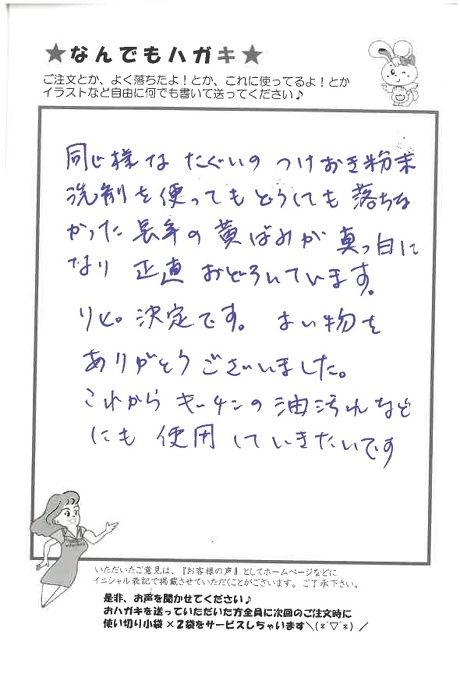 ★なんでもハガキ★
ご注文とか、よく落ちたよ！とか、これに使ってるよ！とか
イラストなど自由に何でも書いて送ってください♪
同じ様な たぐいの つけおき粉末
洗剤を使ってもどうしても 落ちな
かった 長年の 黄ばみが 真っ白に
なり 正直 おどろいています。
リピ 決定です。 よい物を
ありがとうございました。
これから キッチンの 油汚れなど
にも 使用 していきたいです
いただいたご意見は、『お客様の声』としてホームページなどに
イニシャル表記で掲載させていただくことがございます。ご了承下さい。
是非、お声を聞かせてください♪
おハガキを送っていただいた方全員に次回のご注文時に
使い切り小袋×2袋をサービスしちゃいます＼(*´▽`*)／